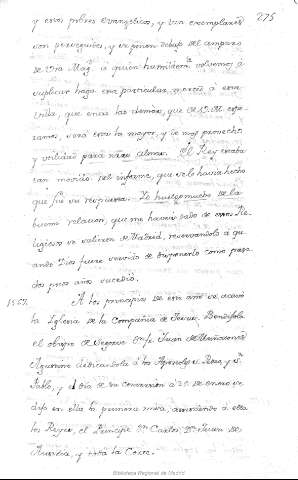 275
y estos pobres evangelicos, y tan exemplares
son perseguidos, y se ponen debajo del amparo
de Vra Magd. à quien humildemte. volvemos à
suplicar haga esta particular merced à esta
villa, que entre las demas, que de V. M. espe-
ramos, será esta la mayor, y de mas provecho
y utilidad para nras almas. El Rey estaba
tan movido del informe, que se lo havia hecho
que fué su respuesta. Yo huelgo mucho de la
buena relacion, que me haveis dado de esos Re-
ligiosos se salieron de Madrid, reservandolo à qu-
ando Dios fuere servido de disponerlo como pasa-
dos unos años sucedió.
1567. A los principios de este año se acavó
la Iglesia de la Compañia de Jesus. Bendijola
el obispo de Segovia Don Fr. Juan de
Agustino dedicandola à los Apostoles S. Pedro, y S.
Pablo, y el dia de su conversion à 25 de enero se
dijo en ella la primera misa, asistiendo à ella
los Reyes, el Principe Dn. Carlos, Dn. Juan de
Austria, y toda la Corte.
Biblioteca Regional de Madrid